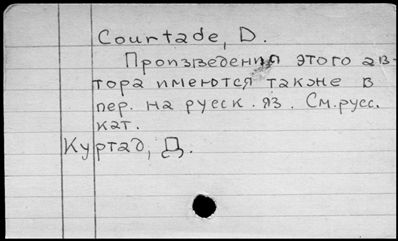 Courtade, D.
Произведения этого ав-
тора имеются также в
пер. на русск. яз. См. русс.
кат.
Куртад, Д.